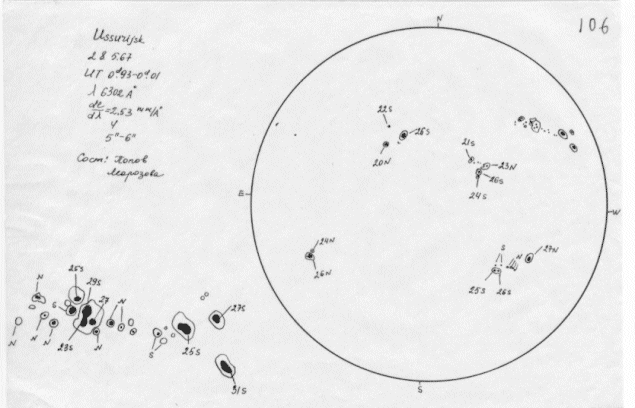 106
Ussurijsk
28 5.67
UT 0ᵈ.93-0ᵈ.01
λ 6302 A°
=2,53 мм/A°
4
5"-6"
Сост: Попов
Морозова
N
22S
26S
20N
21S
23N
26S
24S
E
W
24N
26N
S
N
27N
25S
26S
S
N
25S
29S
27
N
S
N
N
28S
N
S
26S
27S
31S